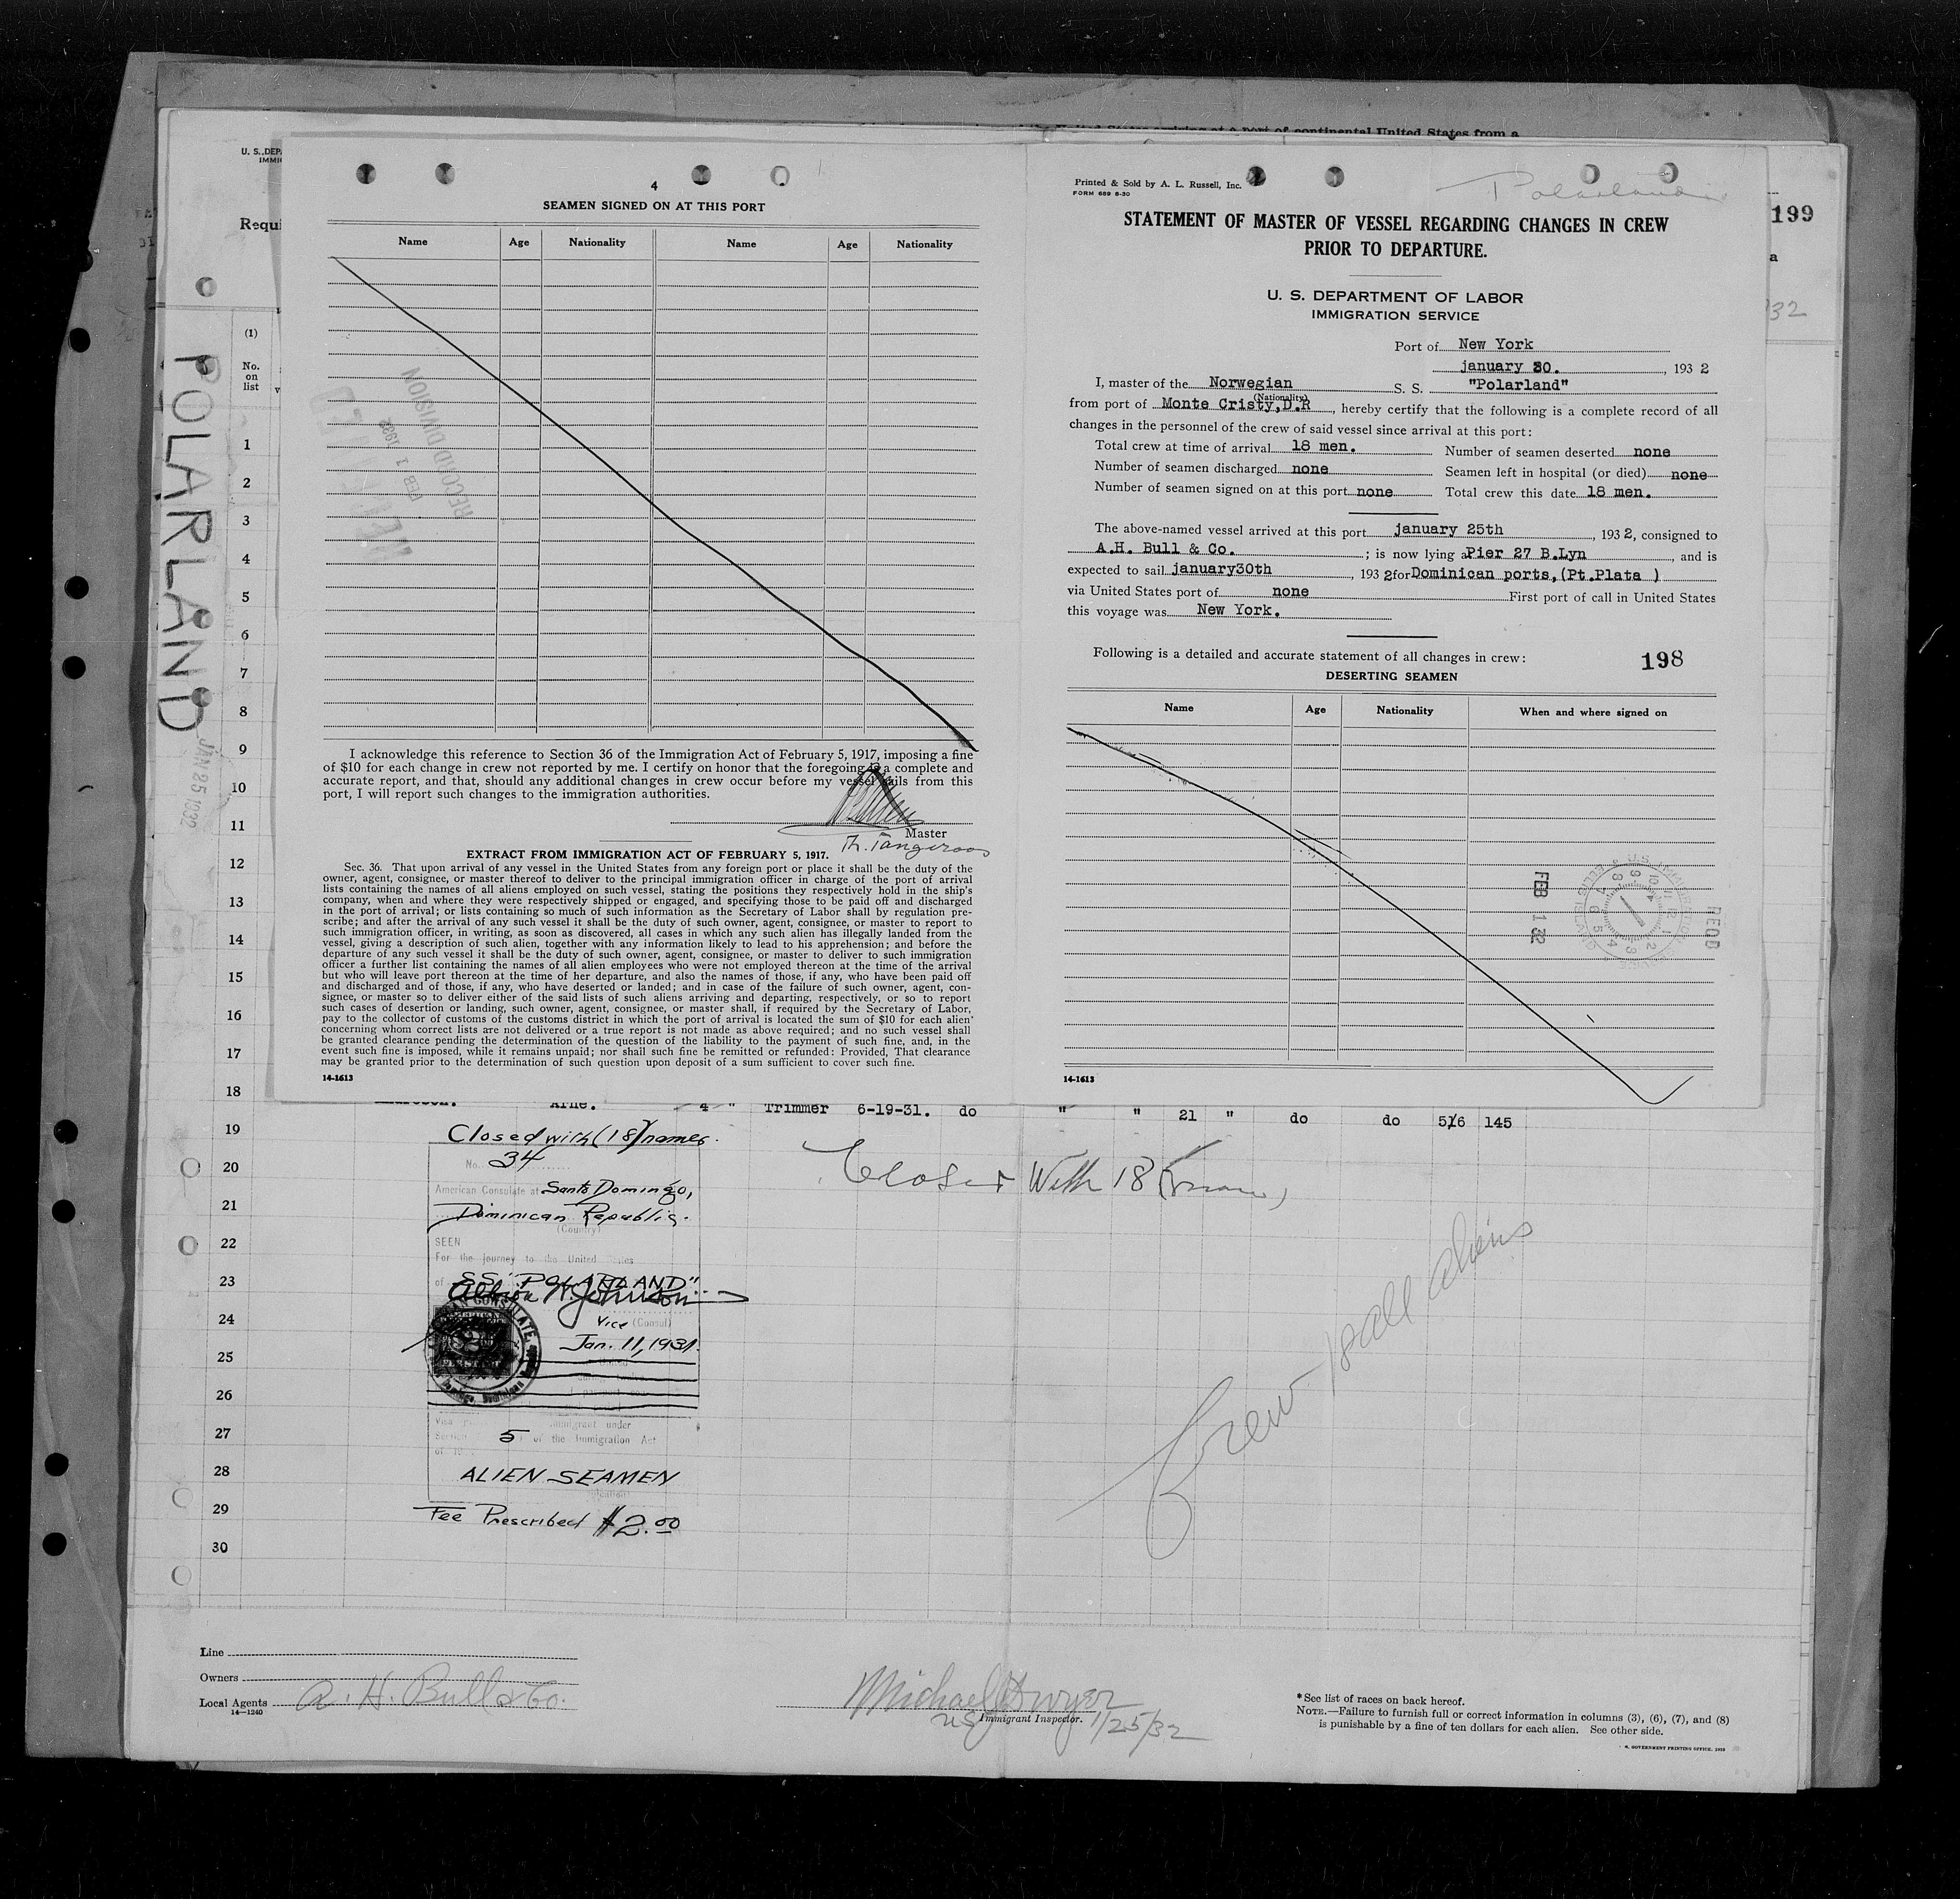 U. S. DEPA
IMMIG
Requi
(1)
No.
on
list
POLARLAND
JAN 25 1932
1
2
3
4
5
6
7
8
9
10
11
12
13
14
15
16
17
18
19
20
21
22
23
24
25
26
27
28
29
30
continental United States from a
199
a
32
4
SEAMEN SIGNED ON AT THIS PORT
Name Age Nationality Name Age Nationality
RECORD DIVISION
FEB 1 1932
I acknowledge this reference to Section 36 of the Immigration Act of February 5, 1917, imposing a fine
of $10 for each change in crew not reported by me. I certify on honor that the foregoing is a complete and
accurate report, and that, should any additional changes in crew occur before my vessel sails from this
port, I will report such changes to the immigration authorities.
Master
EXTRACT FROM IMMIGRATION ACT OF FEBRUARY 5, 1917.
Sec. 36. That upon arrival of any vessel in the United States from any foreign port or place it shall be the duty of the
owner, agent, consignee, or master thereof to deliver to the principal immigration officer in charge of the port of arrival
lists containing the names of all aliens employed on such vessel, stating the positions they respectively hold in the ship's
company, when and where they were respectively shipped or engaged, and specifying those to be paid off and discharged
in the port of arrival; or lists containing so much of such information as the Secretary of Labor shall by regulation pre-
scribe; and after the arrival of any such vessel it shall be the duty of such owner, agent, consignee, or master to report to
such immigration officer, in writing, as soon as discovered, all cases in which any such alien has illegally landed from the
vessel, giving a description of such alien, together with any information likely to lead to his apprehension; and before the
departure of any such vessel it shall be the duty of such owner, agent, consignee, or master to deliver to such immigration
officer a further list containing the names of all alien employees who were not employed thereon at the time of the arrival
but who will leave port thereon at the time of her departure, and also the names of those, if any, who have been paid off
and discharged and of those, if any, who have deserted or landed; and in case of the failure of such owner, agent, con-
signee, or master so to deliver either of the said lists of such aliens arriving and departing, respectively, or so to report
such cases of desertion or landing, such owner, agent, consignee, or master shall, if required by the Secretary of Labor,
pay to the collector of customs of the customs district in which the port of arrival is located the sum of $10 for each alien
concerning whom correct lists are not delivered or a true report is not made as above required; and no such vessel shall
be granted clearance pending the determination of the question of the liability to the payment of such fine, and, in the
event such fine is imposed, while it remains unpaid; nor shall such fine be remitted or refunded: Provided, That clearance
may be granted prior to the determination of such question upon deposit of a sum sufficient to cover such fine.
14-1613
Printed & Sold by A. L. Russell, Inc.
FORM 689 8-30
Polarland
STATEMENT OF MASTER OF VESSEL REGARDING CHANGES IN CREW
PRIOR TO DEPARTURE.
U. S. DEPARTMENT OF LABOR
IMMIGRATION SERVICE
Port of New York
january 30. , 193 2
I, master of the Norwegian S. S. "Polarland"
(Nationality)
from port of Monte Cristy,D.R , hereby certify that the following is a complete record of all
changes in the personnel of the crew of said vessel since arrival at this port:
Total crew at time of arrival 18 men. Number of seamen deserted none
Number of seamen discharged none Seamen left in hospital (or died) none
Number of seamen signed on at this port none Total crew this date 18 men.
The above-named vessel arrived at this port january 25th , 193 2, consigned to
A.H. Bull & Co. ; is now lying a Pier 27 B.Lyn , and is
expected to sail january30th , 193 2 for Dominican ports,(Pt.Plata )
via United States port of none First port of call in United States
this voyage was New York.
Following is a detailed and accurate statement of all changes in crew: 198
DESERTING SEAMEN
Name Age Nationality When and where signed on
FEB 1 32
RECD
14-1613
Arne. 4 " Trimmer 6-19-31. do " " 21 " do do 5/6 145
Closed with (18) names.
No. 34
American Consulate at Santo Domingo,
Dominican Republic.
(Country)
SEEN
For the journey to the United States
of SS "POLARLAND"
Albion W. Johnson
Vice (Consul)
Jan. 11, 1931
5 of the Immigration Act
ALIEN SEAMEN
Fee Prescribed $2.00
Closed With 18
Crew 18 all aliens
Line
Owners
Local Agents A. H. Bull & Co.
14-1240
Michael J Dwyer
Immigrant Inspector. 1/25/32
*See list of races on back hereof.
NOTE.—Failure to furnish full or correct information in columns (3), (6), (7), and (8)
is punishable by a fine of ten dollars for each alien. See other side.
GOVERNMENT PRINTING OFFICE